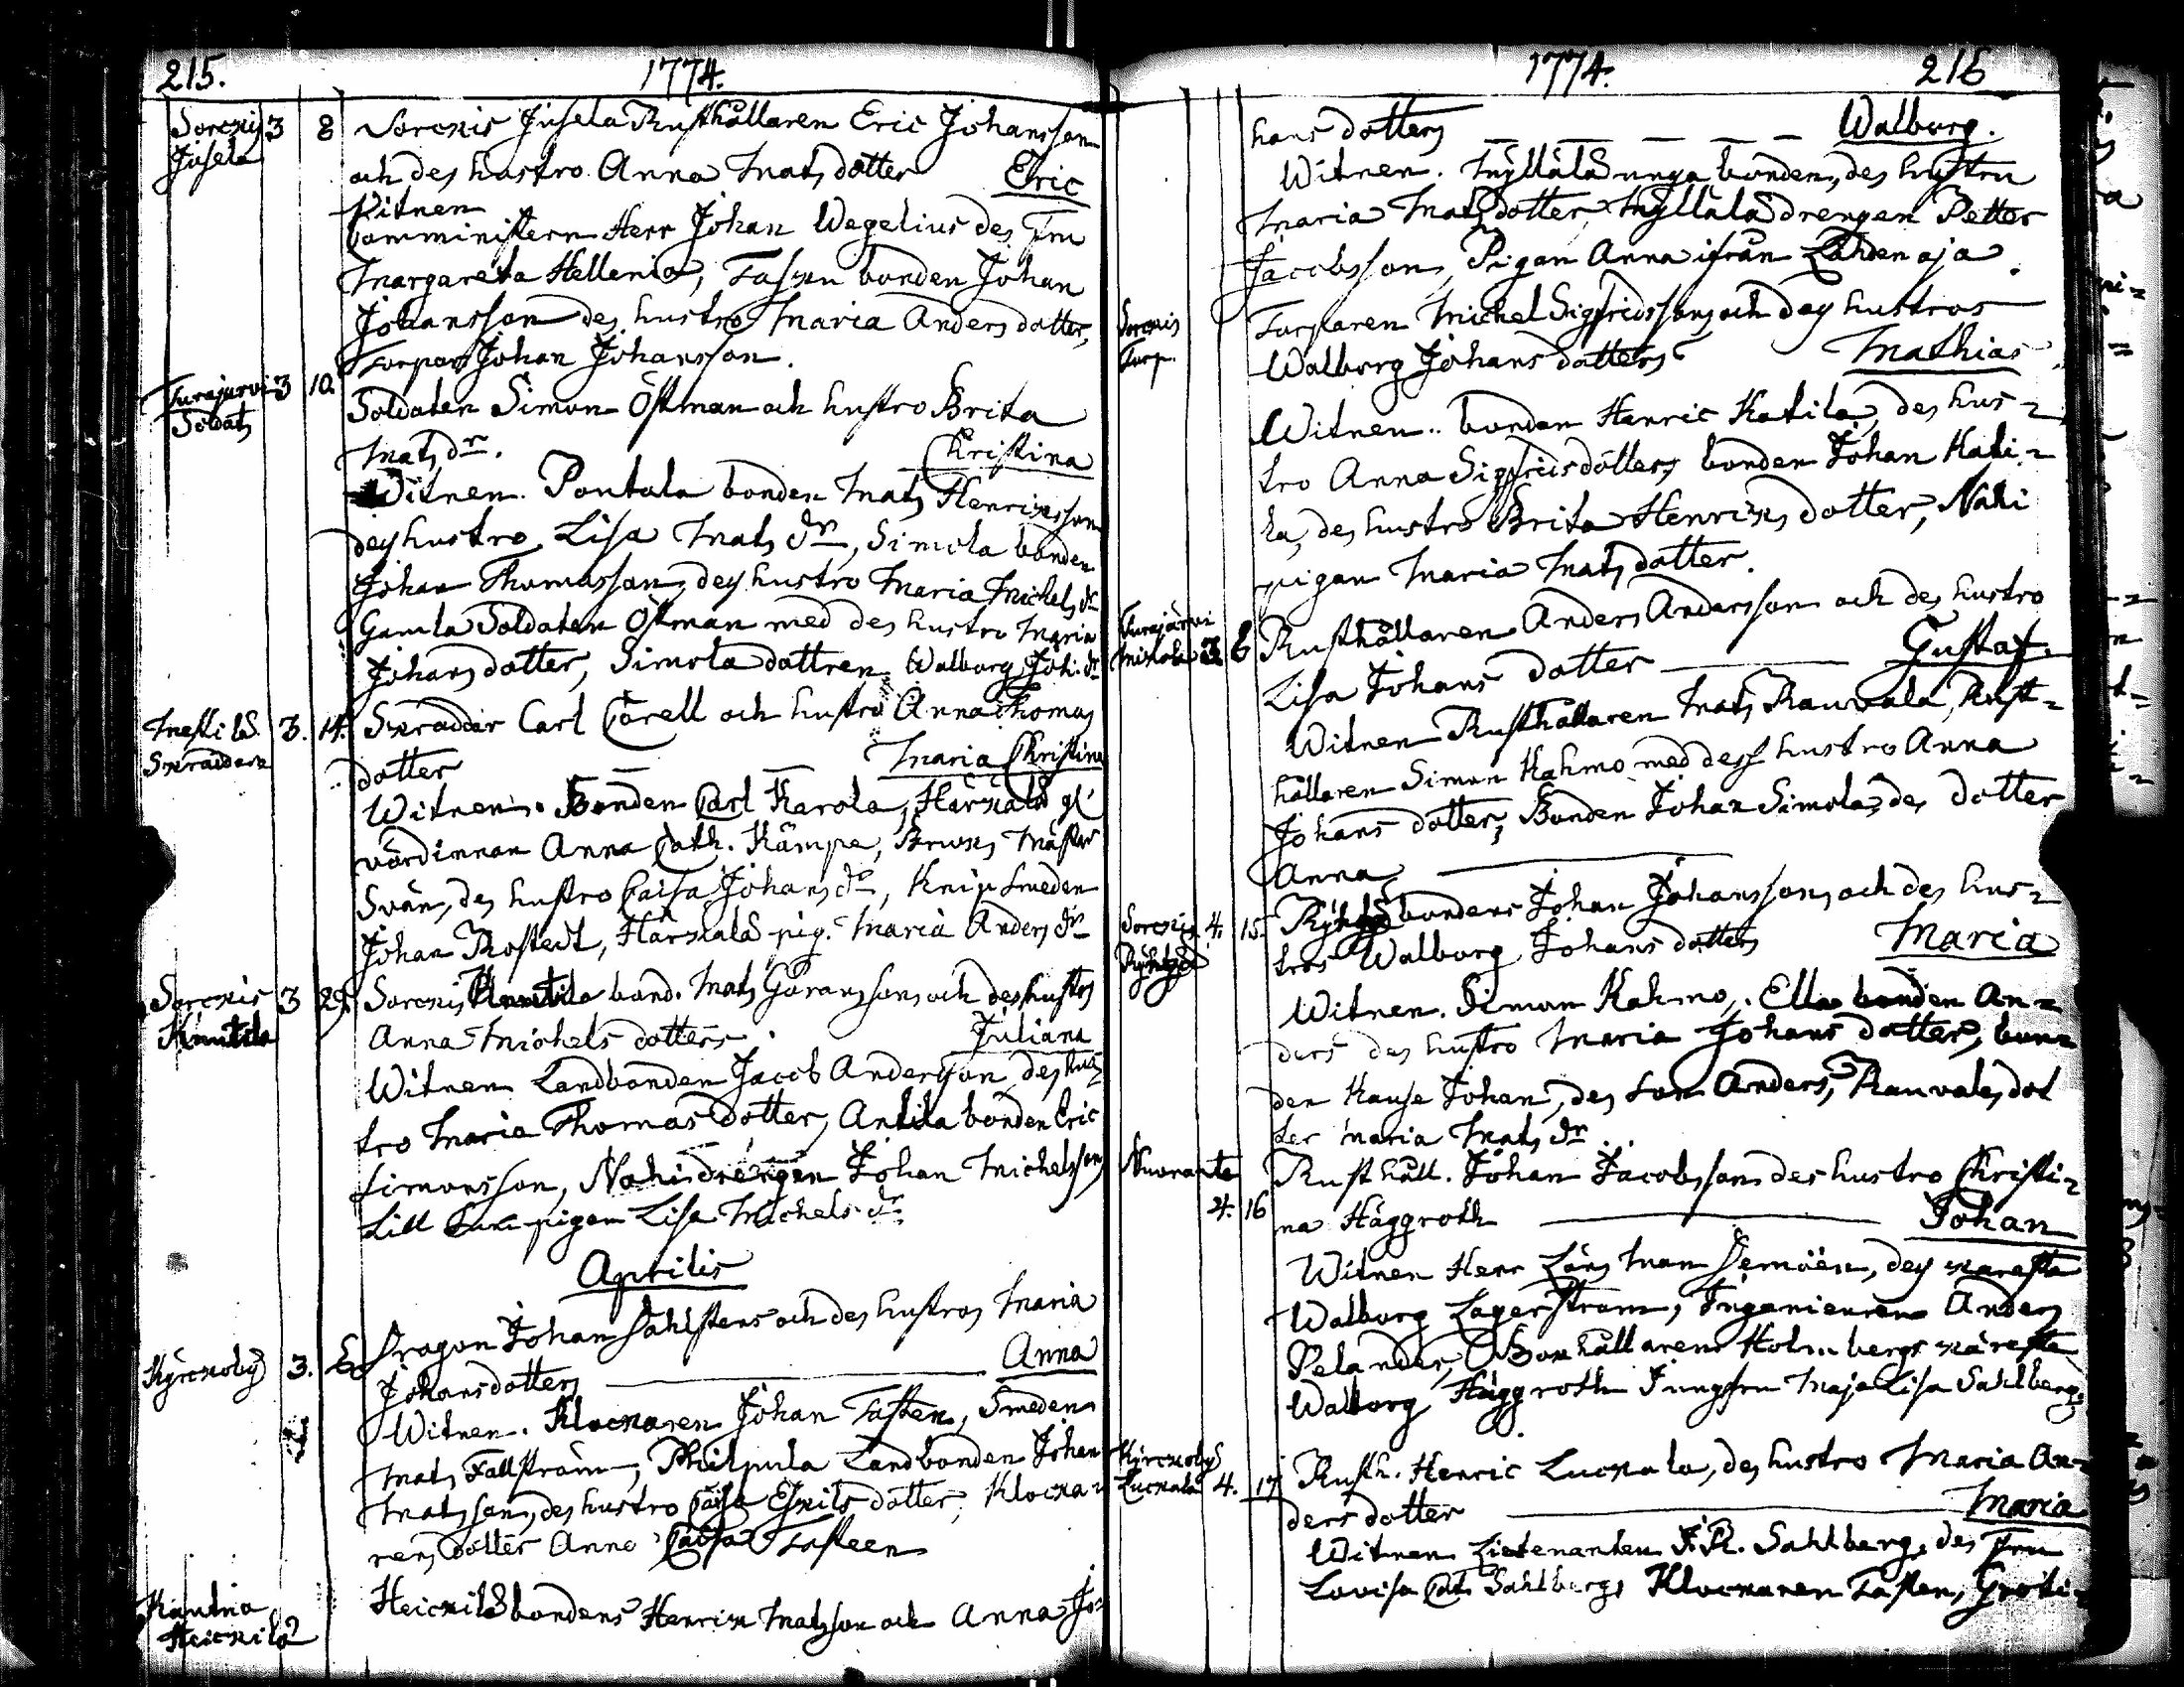 215.
1774.
Sorckis 3 8 Sorckis Jusela Rusthållaren Eric Johansson
Jusela
och des hustro Anna Mats dotter Eric
Vitnen
Comministern Herr Johan Wegelius des Fru
Margareta Hellenia, Tasku bonden Johan
Johansson des hustro Maria Anders dotter,
Torpar Johan Johansson.
Turajärvi 3 10. Soldaten Simon Östman och hustro Brita
Soldat
Mats dr. Christina
Witnen. Pontala bonden Mats Henricsson
des hustro Lisa Mats dr, Simola bonden
Johan Thomasson, des hustro Maria Michels dr
Gamla Soldaten Östman med des hustro Maria
Johans dotter, Simola dottren Walborg Joh. dr
Mestilä 3. 14. Skräddar Carl Carell och hustro Anna Thomas
Skräddare
dotter Maria Christina
Witnen. Bonden Carl Karola, Härkälä gl.
värdinnan Anna Cath. Kämpe, Bruks Mästar
Svän, des hustro Caisa Johans dr, Knip smeden
Johan Rostedt, Härkälä pig. Maria Anders dr
Sorckis 3 29. Sorckis Knutila bond. Mats Göransson, och des hustro
Knutila
Anna Michels dotters Juliana
Witnen Landbonden Jacob Andersson, des hus
tro Maria Thomas dotter, Antila bonden Eric
Simonsson, Nahi drengen Johan Michelsson
Lill pigan Lisa Michels dr
Aprilis
Kyrckoby 3. Dragon Johan Dahlstens och des hustros Maria
Johansdotters Anna
Witnen. Klockaren Johan Tasten, Smeden
Mats Fallström, Philpula Landbonden Johan
Matsson, des hustro Caisa Eskils dotter, Klocka-
rens dotter Anna Caisa Tasteen
Kautua Heickilä bondens Henrik Matsson och Anna Jo-
Heickilä
1774.
216
hans dotters Walborg.
Witnen. Myllälä unga bonden, des hustru
Maria Mats dotter, Myllälä drengen Petter
Jacobsson, Pigan Anna ifrån Lähden oja.
Sorckis Torparen Michel Sigfridsson, och des hustros
Torp.
Walborg Johans dotters Mathias
Witnen. bonden Henric Katila, des hus-
tro Anna Sigfrids dotter, bonden Johan Kati-
la, des hustro Brita Henriks dotter, Nahi
pigan Maria Mats dotter.
Turajärvi
6 Rusthållaren Anders Andersson och des hustro
Lisa Johans dotter Gustaf.
Witnen Rusthållaren Mats Rauvala, Rust-
hållaren Simon Kahmo med dess hustro Anna
Johans dotter, Bonden Johan Simola, des dotter
Anna
Sorckis 4. 15. bondens Johan Johansson, och des hus-
tros Walborg Johans dotters Maria
Witnen. Simon Kahmo, Ella bonden An-
ders des hustro Maria Johans dotter, bon-
den Kause Johan, des son Anders, Rauvala dot
ter Maria Mats dr.
Nuorante Rusthåll. Johan Jacobsson des hustro Christi-
4. 16 na Häggroth Johan
Witnen Herr Läns man Semöen, des käresta
Walborg Lagerström, Ingenieuren Anders
Pelander, Bokhållarens Holmbergs käresta
Walborg Häggroth Jungfru Maja Lisa Sahlberg.
Kyrckoby
Luckala 4. 17 Rusth. Henric Luckala, des hustro Maria An-
ders dotter Maria
Witnen Lietenanten F. R. Sahlberg, des Fru
Lovisa Cat. Sahlberg, Klockaren Tasten,